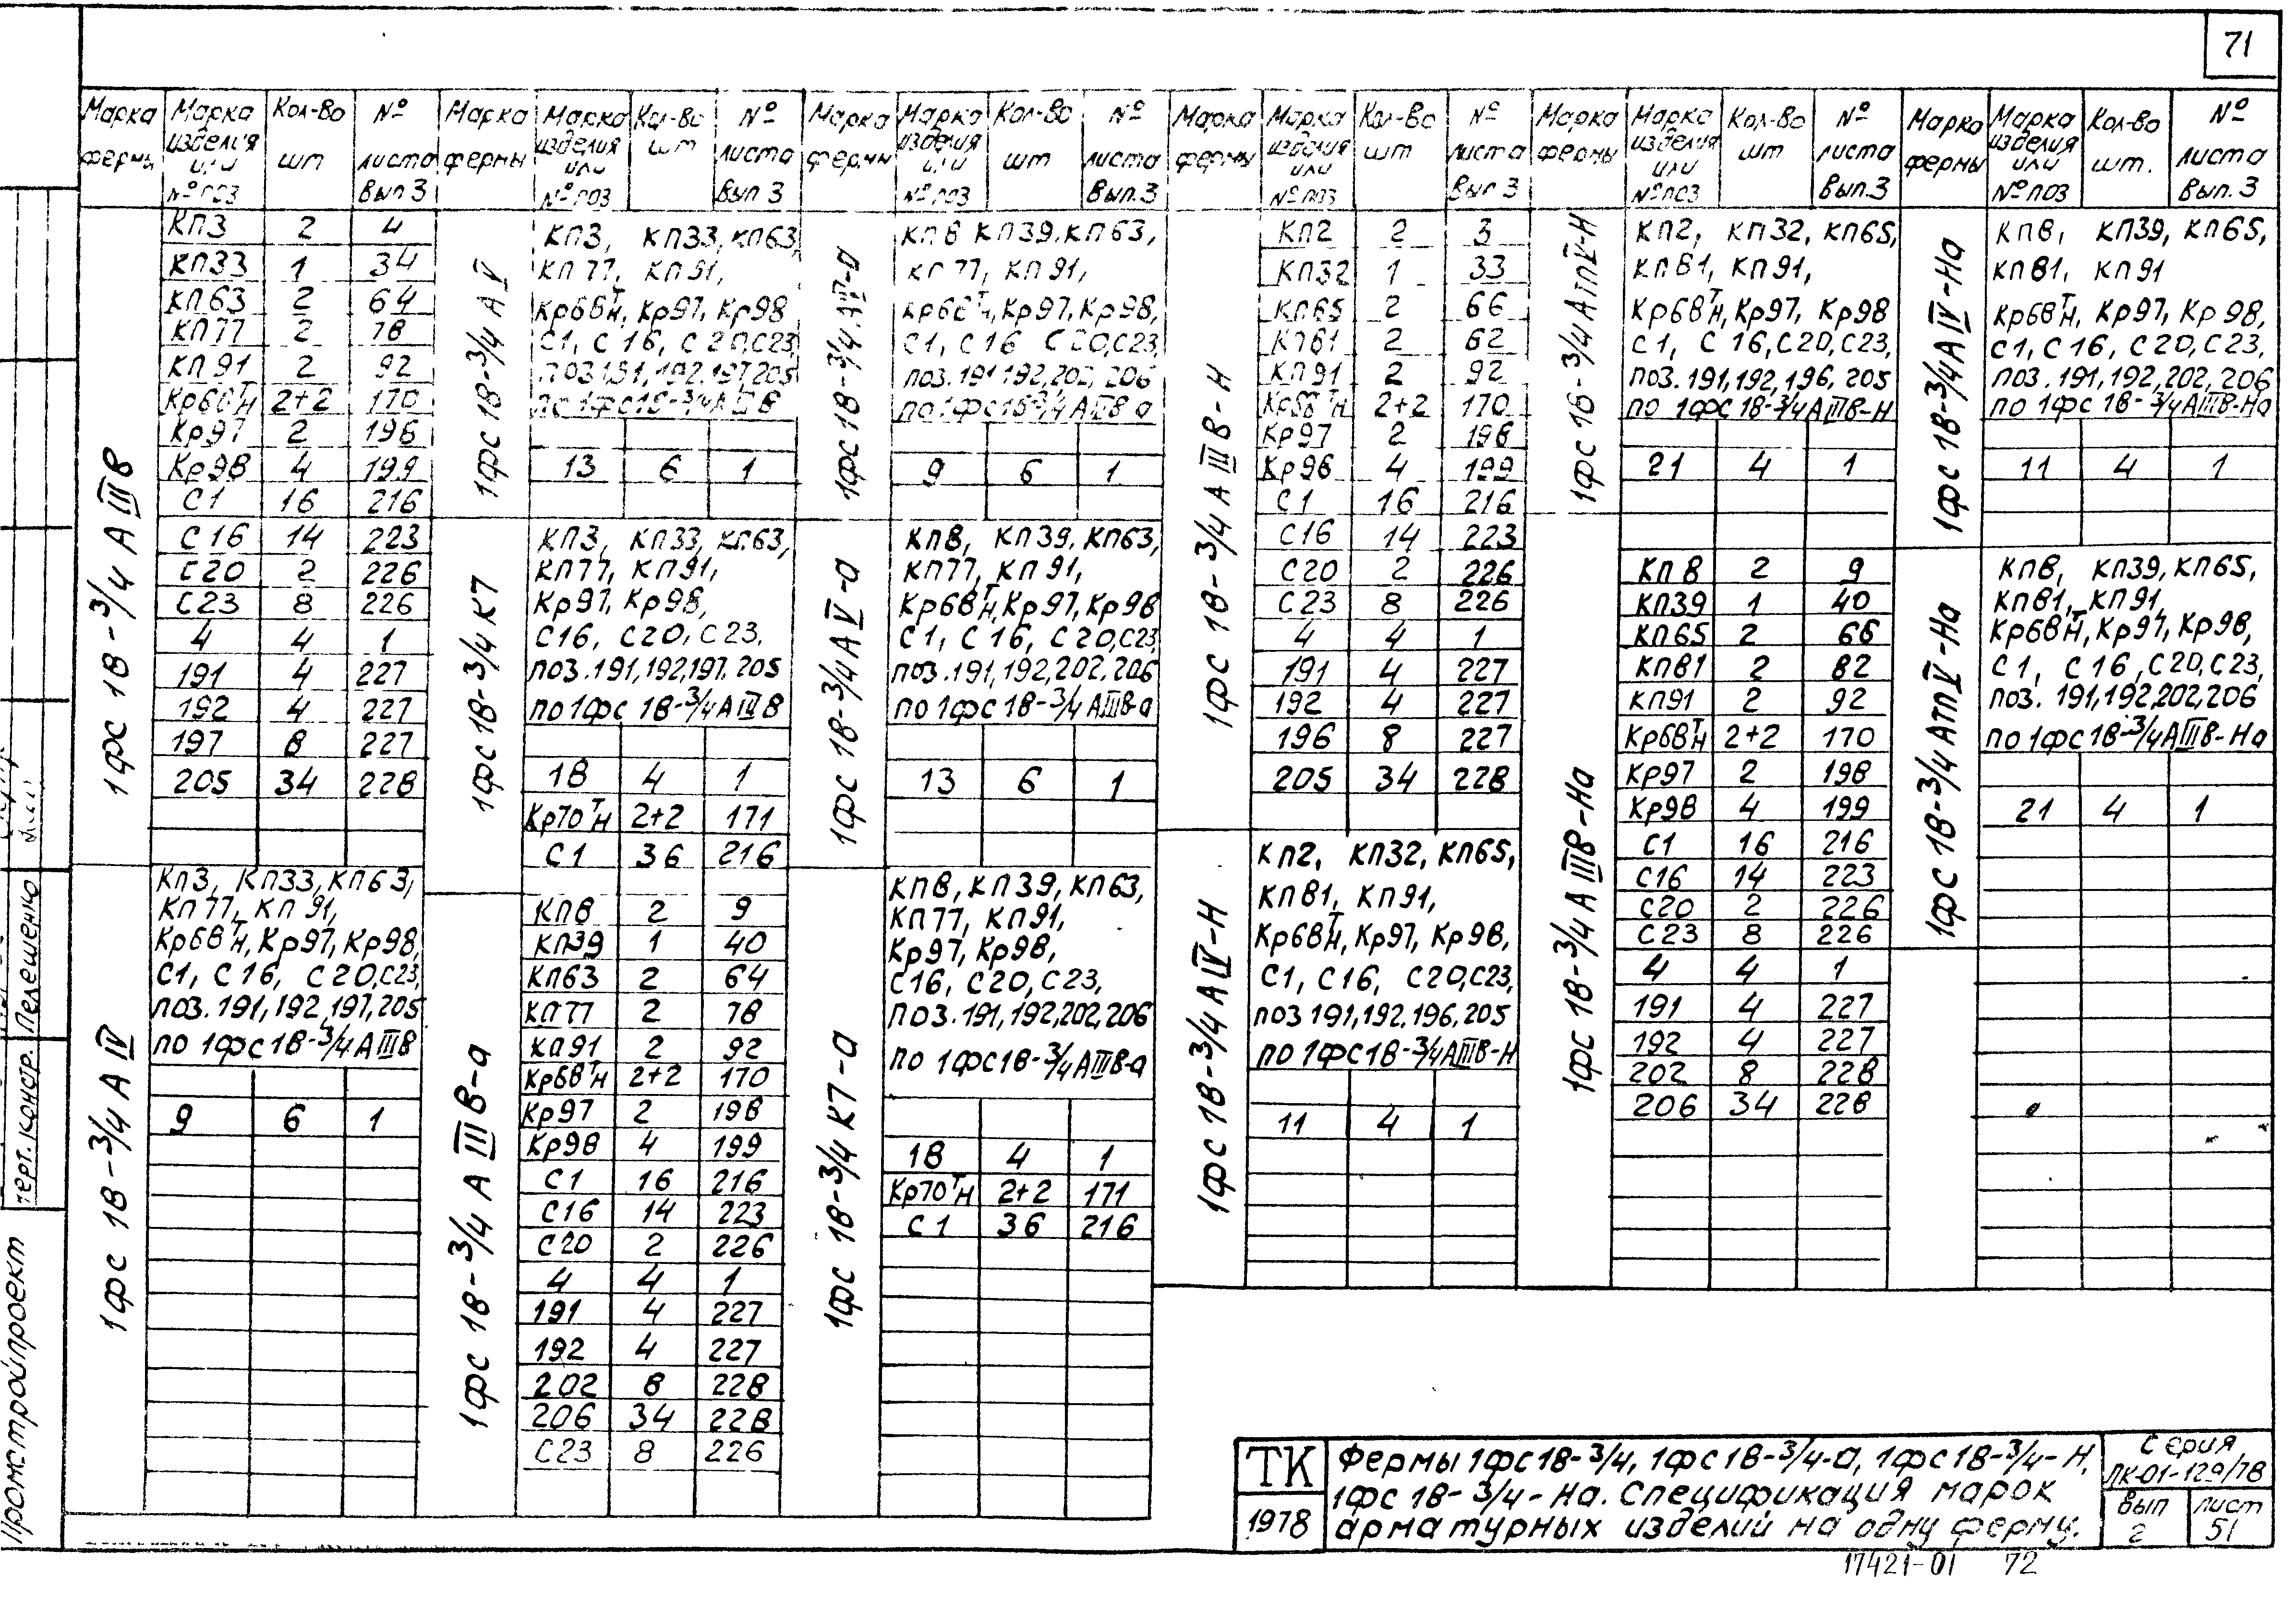 71
Марка фермы | Марка изделия или № поз | Кол-во шт | № листа Вып 3
1фс 18-3/4 А IIIв
КП3 2 4
КП33 1 34
КП63 2 64
КП77 2 78
КП91 2 92
Кр68тн 2+2 170
Кр97 2 198
Кр98 4 199
С1 16 216
С16 14 223
С20 2 226
С23 8 226
4 4 1
191 4 227
192 4 227
197 8 227
205 34 228
1фс 18-3/4 А IV
КП3, КП33, КП63,
КП77, КП91,
Кр68тн, Кр97, Кр98,
С1, С16, С20, С23,
поз. 191, 192, 197, 205
по 1фс18-3/4 А IIIв
9 6 1
Марка фермы | Марка изделия или № поз | Кол-во шт | № листа Вып 3
1фс 18-3/4 А V
КП3, КП33, КП63,
КП77, КП91,
Кр68тн, Кр97, Кр98
С1, С16, С20, С23,
поз 191, 192, 197, 205
по 1фс18-3/4 А IIIв
13 6 1
1фс 18-3/4 К7
КП3, КП33, КП63,
КП77, КП91,
Кр97, Кр98,
С16, С20, С23,
поз. 191, 192, 197, 205
по 1фс 18-3/4 А IIIв
18 4 1
Кр70тн 2+2 171
С1 36 216
1фс 18-3/4 А IIIв-а
КП8 2 9
КП39 1 40
КП63 2 64
КП77 2 78
КП91 2 92
Кр68тн 2+2 170
Кр97 2 198
Кр98 4 199
С1 16 216
С16 14 223
С20 2 226
4 4 1
191 4 227
192 4 227
202 8 228
206 34 228
С23 8 226
Марка фермы | Марка изделия или № поз | Кол-во шт | № листа Вып.3
1фс 18-3/4 А IV-а
КП8 КП39, КП63,
КП77, КП91,
Кр68тн, Кр97, Кр98,
С1, С16 С20, С23,
поз. 191 192, 202, 206
по 1фс18-3/4 А IIIв а
9 6 1
1фс 18-3/4 А V-а
КП8, КП39, КП63,
КП77, КП91,
Кр68тн, Кр97, Кр98
С1, С16, С20, С23,
поз. 191, 192, 202, 206
по 1фс 18-3/4 АIIIв-а
13 6 1
1фс 18-3/4 К7-а
КП8, КП39, КП63,
КП77, КП91,
Кр97, Кр98,
С16, С20, С23,
поз. 191, 192, 202, 206
по 1фс18-3/4 АIIIв-а
18 4 1
Кр70тн 2+2 171
С1 36 216
Марка фермы | Марка изделия или № поз | Кол-во шт | № листа Вып 3
1фс 18-3/4 А IIIв-Н
КП2 2 3
КП32 1 33
КП65 2 66
КП81 2 82
КП91 2 92
Кр68тн 2+2 170
Кр97 2 198
Кр98 4 199
С1 16 216
С16 14 223
С20 2 226
С23 8 226
4 4 1
191 4 227
192 4 227
196 8 227
205 34 228
1фс 18-3/4 А IV-Н
КП2, КП32, КП65,
КП81, КП91,
Кр68тн, Кр97, Кр98,
С1, С16, С20, С23,
поз 191, 192, 196, 205
по 1фс18-3/4АIIIв-Н
11 4 1
Марка фермы | Марка изделия или № поз | Кол-во шт | № листа Вып.3
1фс 18-3/4 АтпV-Н
КП2, КП32, КП65,
КП81, КП91,
Кр68тн, Кр97, Кр98
С1, С16, С20, С23,
поз. 191, 192, 196, 205
по 1фс 18-3/4АIIIв-Н
21 4 1
1фс 18-3/4 А IIIв-На
КП8 2 9
КП39 1 40
КП65 2 66
КП81 2 82
КП91 2 92
Кр68тн 2+2 170
Кр97 2 198
Кр98 4 199
С1 16 216
С16 14 223
С20 2 226
С23 8 226
4 4 1
191 4 227
192 4 227
202 8 228
206 34 228
Марка фермы | Марка изделия или № поз | Кол-во шт. | № листа Вып.3
1фс 18-3/4 А IV-На
КП8, КП39, КП65,
КП81, КП91
Кр68тн, Кр97, Кр98,
С1, С16, С20, С23,
поз. 191, 192, 202, 206
по 1фс 18-3/4АIIIв-На
11 4 1
1фс 18-3/4 АтпV-На
КП8, КП39, КП65,
КП81, КП91,
Кр68тн, Кр97, Кр98,
С1, С16, С20, С23,
поз. 191, 192, 202, 206
по 1фс18-3/4АIIIв-На
21 4 1
Черт. констр. Пелешенко
Промстройпроект
ТК
1978
Фермы 1фс18-3/4, 1фс18-3/4-а, 1фс18-3/4-Н,
1фс 18-3/4-На. Спецификация марок
арматурных изделий на одну ферму.
Серия
ПК-01-129/78
Вып 2
лист 51
17421-01 72